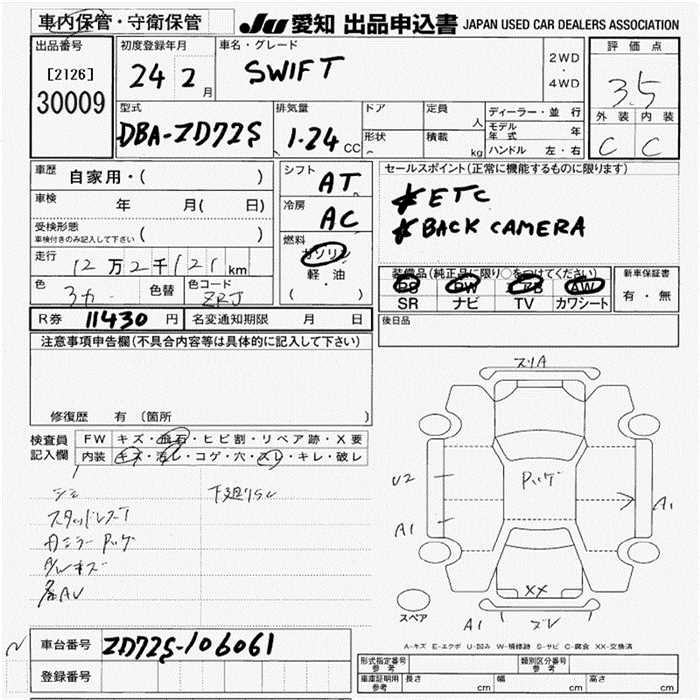 車内保管・守衛保管 JU 愛知 出品申込書 JAPAN USED CAR DEALERS ASSOCIATION
出品番号 初度登録年月 車名・グレード 評価点
[2126] 24 2月 SWIFT 2WD・4WD 3.5
30009 外装 内装
C C
型式 排気量 ドア 定員 人 ディーラー・並行
DBA-ZD72S 1.24 CC 形状 積載 kg モデル年式 年
ハンドル 左・右
車歴 自家用・( ) シフト AT セールスポイント(正常に機能するものに限ります)
車検 年 月( 日) 冷房 AC *ETC
受検形態 ( ) *BACK CAMERA
車検付きのみ記入して下さい
走行 12万2千121km 燃料 ガソリン 装備品(純正品に限り○をつけてください) 新車保証書
軽・油 PS PW AB AW 有・無
色 色替 色コード ZRJ ( ・ ) SR ナビ TV カワシート
R券 11430円 名変通知期限 月 日 後日品
注意事項申告欄(不具合内容等は具体的に記入して下さい)
修復歴 有(箇所 )
検査員記入欄 FW キズ・飛石・ヒビ割・リペア跡・X要
内装 キズ・汚レ・コゲ・穴・スレ・キレ・破レ
スリA
U2
A1
A1
XX
A1 ズレ
スペア
A-キズ E-エクボ U-凹み W-補修跡 S-サビ C-腐食 XX-交換済
車台番号 ZD72S-106061
登録番号
形式指定番号 参考 類別区分番号 参考
車庫証明用 参考 長さ cm 幅 cm 高さ cm